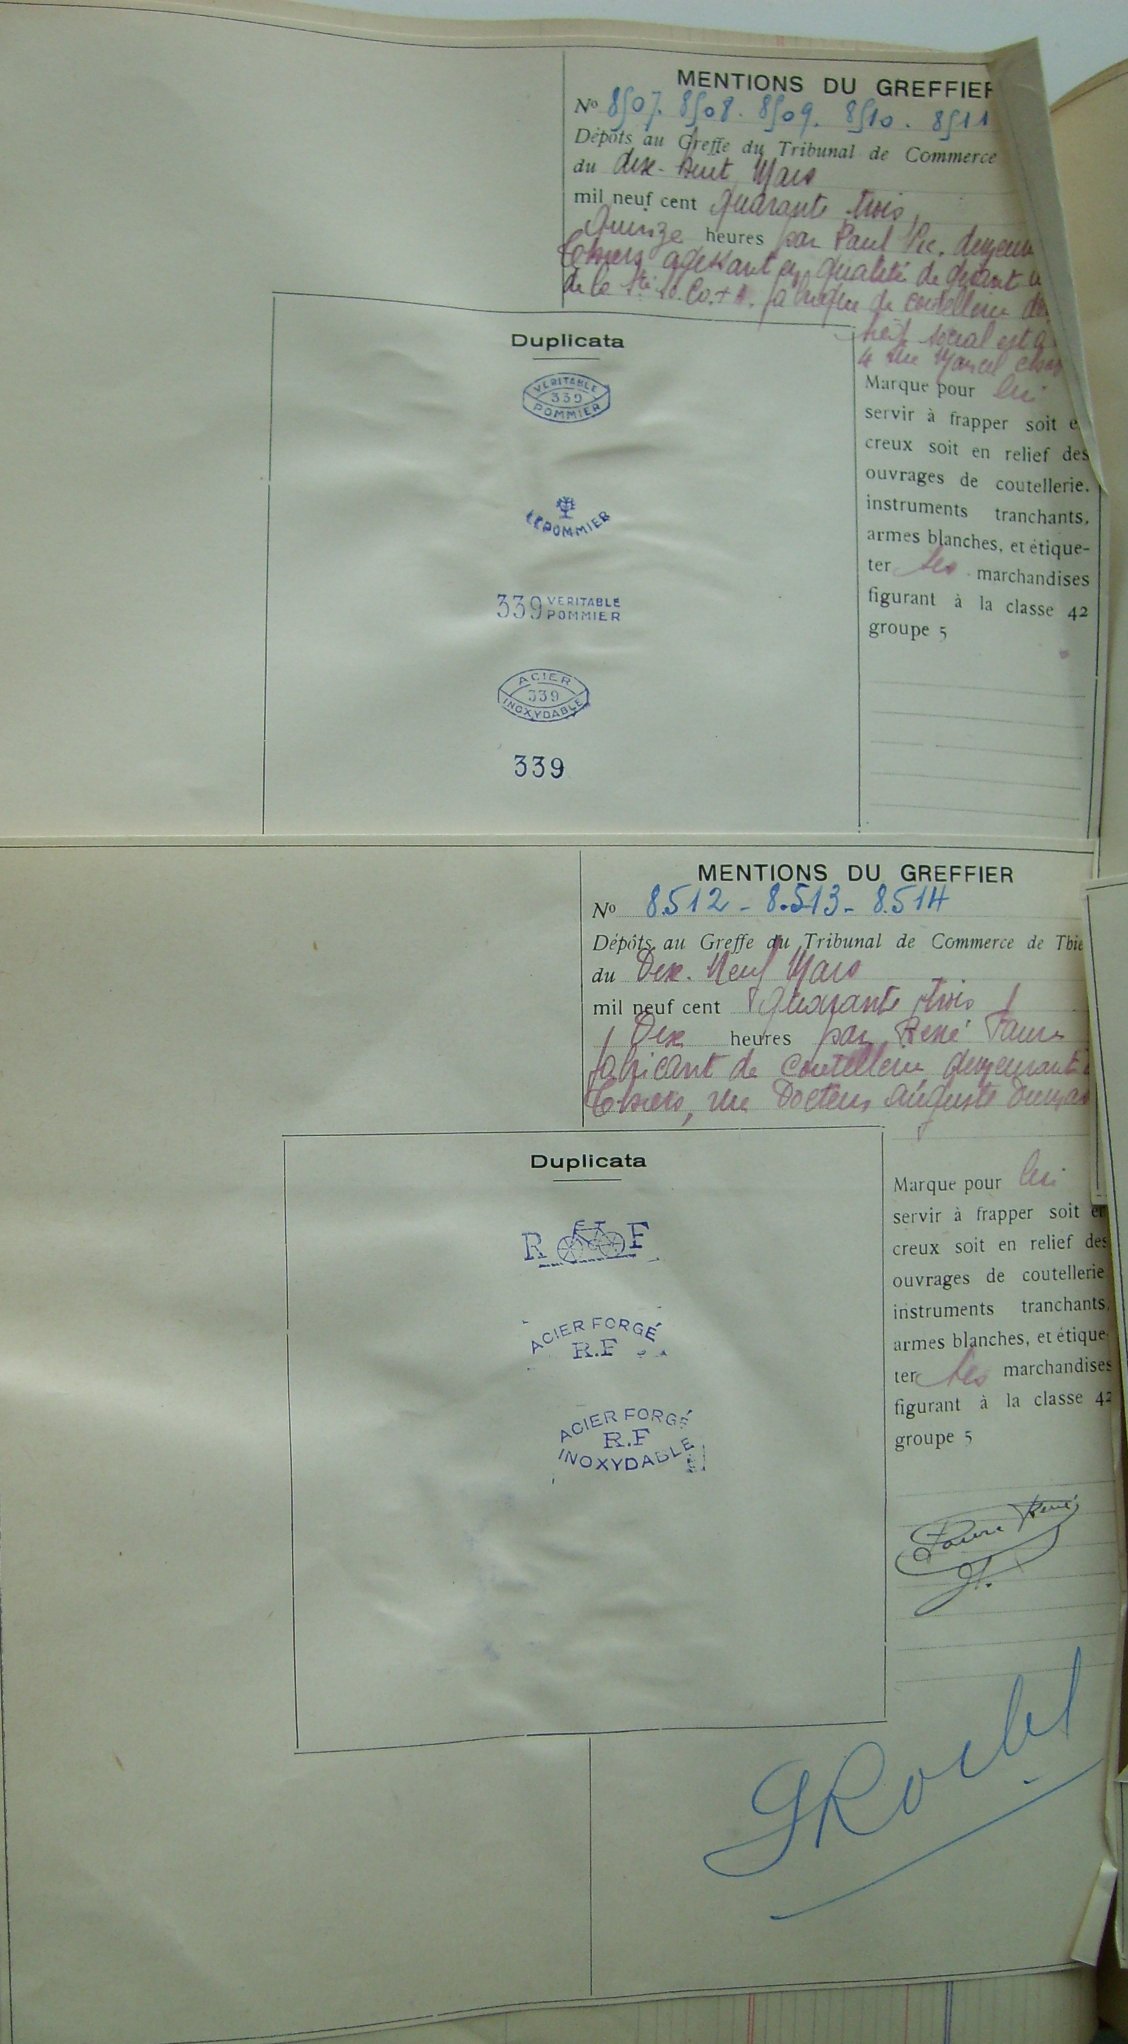 MENTIONS DU GREFFIER
No 8507. 8508. 8509. 8510. 8511
Dépôts au Greffe du Tribunal de Commerce
du dix-huit Mars
mil neuf cent quarante trois
Quinze heures par Paul
Thiers agissant en qualité de gérant
de la Sté fabrique de coutellerie
social est à
4 rue Marcel
Duplicata
VERITABLE
339
POMMIER
LE POMMIER
339 VERITABLE
POMMIER
ACIER
339
INOXYDABLE
339
Marque pour lui
servir à frapper soit e
creux soit en relief des
ouvrages de coutellerie,
instruments tranchants,
armes blanches, et étique-
ter ses marchandises
figurant à la classe 42
groupe 5
MENTIONS DU GREFFIER
No 8.512 - 8.513 - 8.514
Dépôts au Greffe du Tribunal de Commerce de Thie
du Dix-Neuf Mars
mil neuf cent quarante trois
Dix heures par René Faure
fabricant de coutellerie demeurant à
Thiers, rue Docteur Auguste Dumas
Duplicata
R F
ACIER FORGÉ
R.F
ACIER FORGÉ
R.F
INOXYDABLE
Marque pour lui
servir à frapper soit en
creux soit en relief des
ouvrages de coutellerie
instruments tranchants,
armes blanches, et étique-
ter ses marchandises
figurant à la classe 42
groupe 5
Faure René